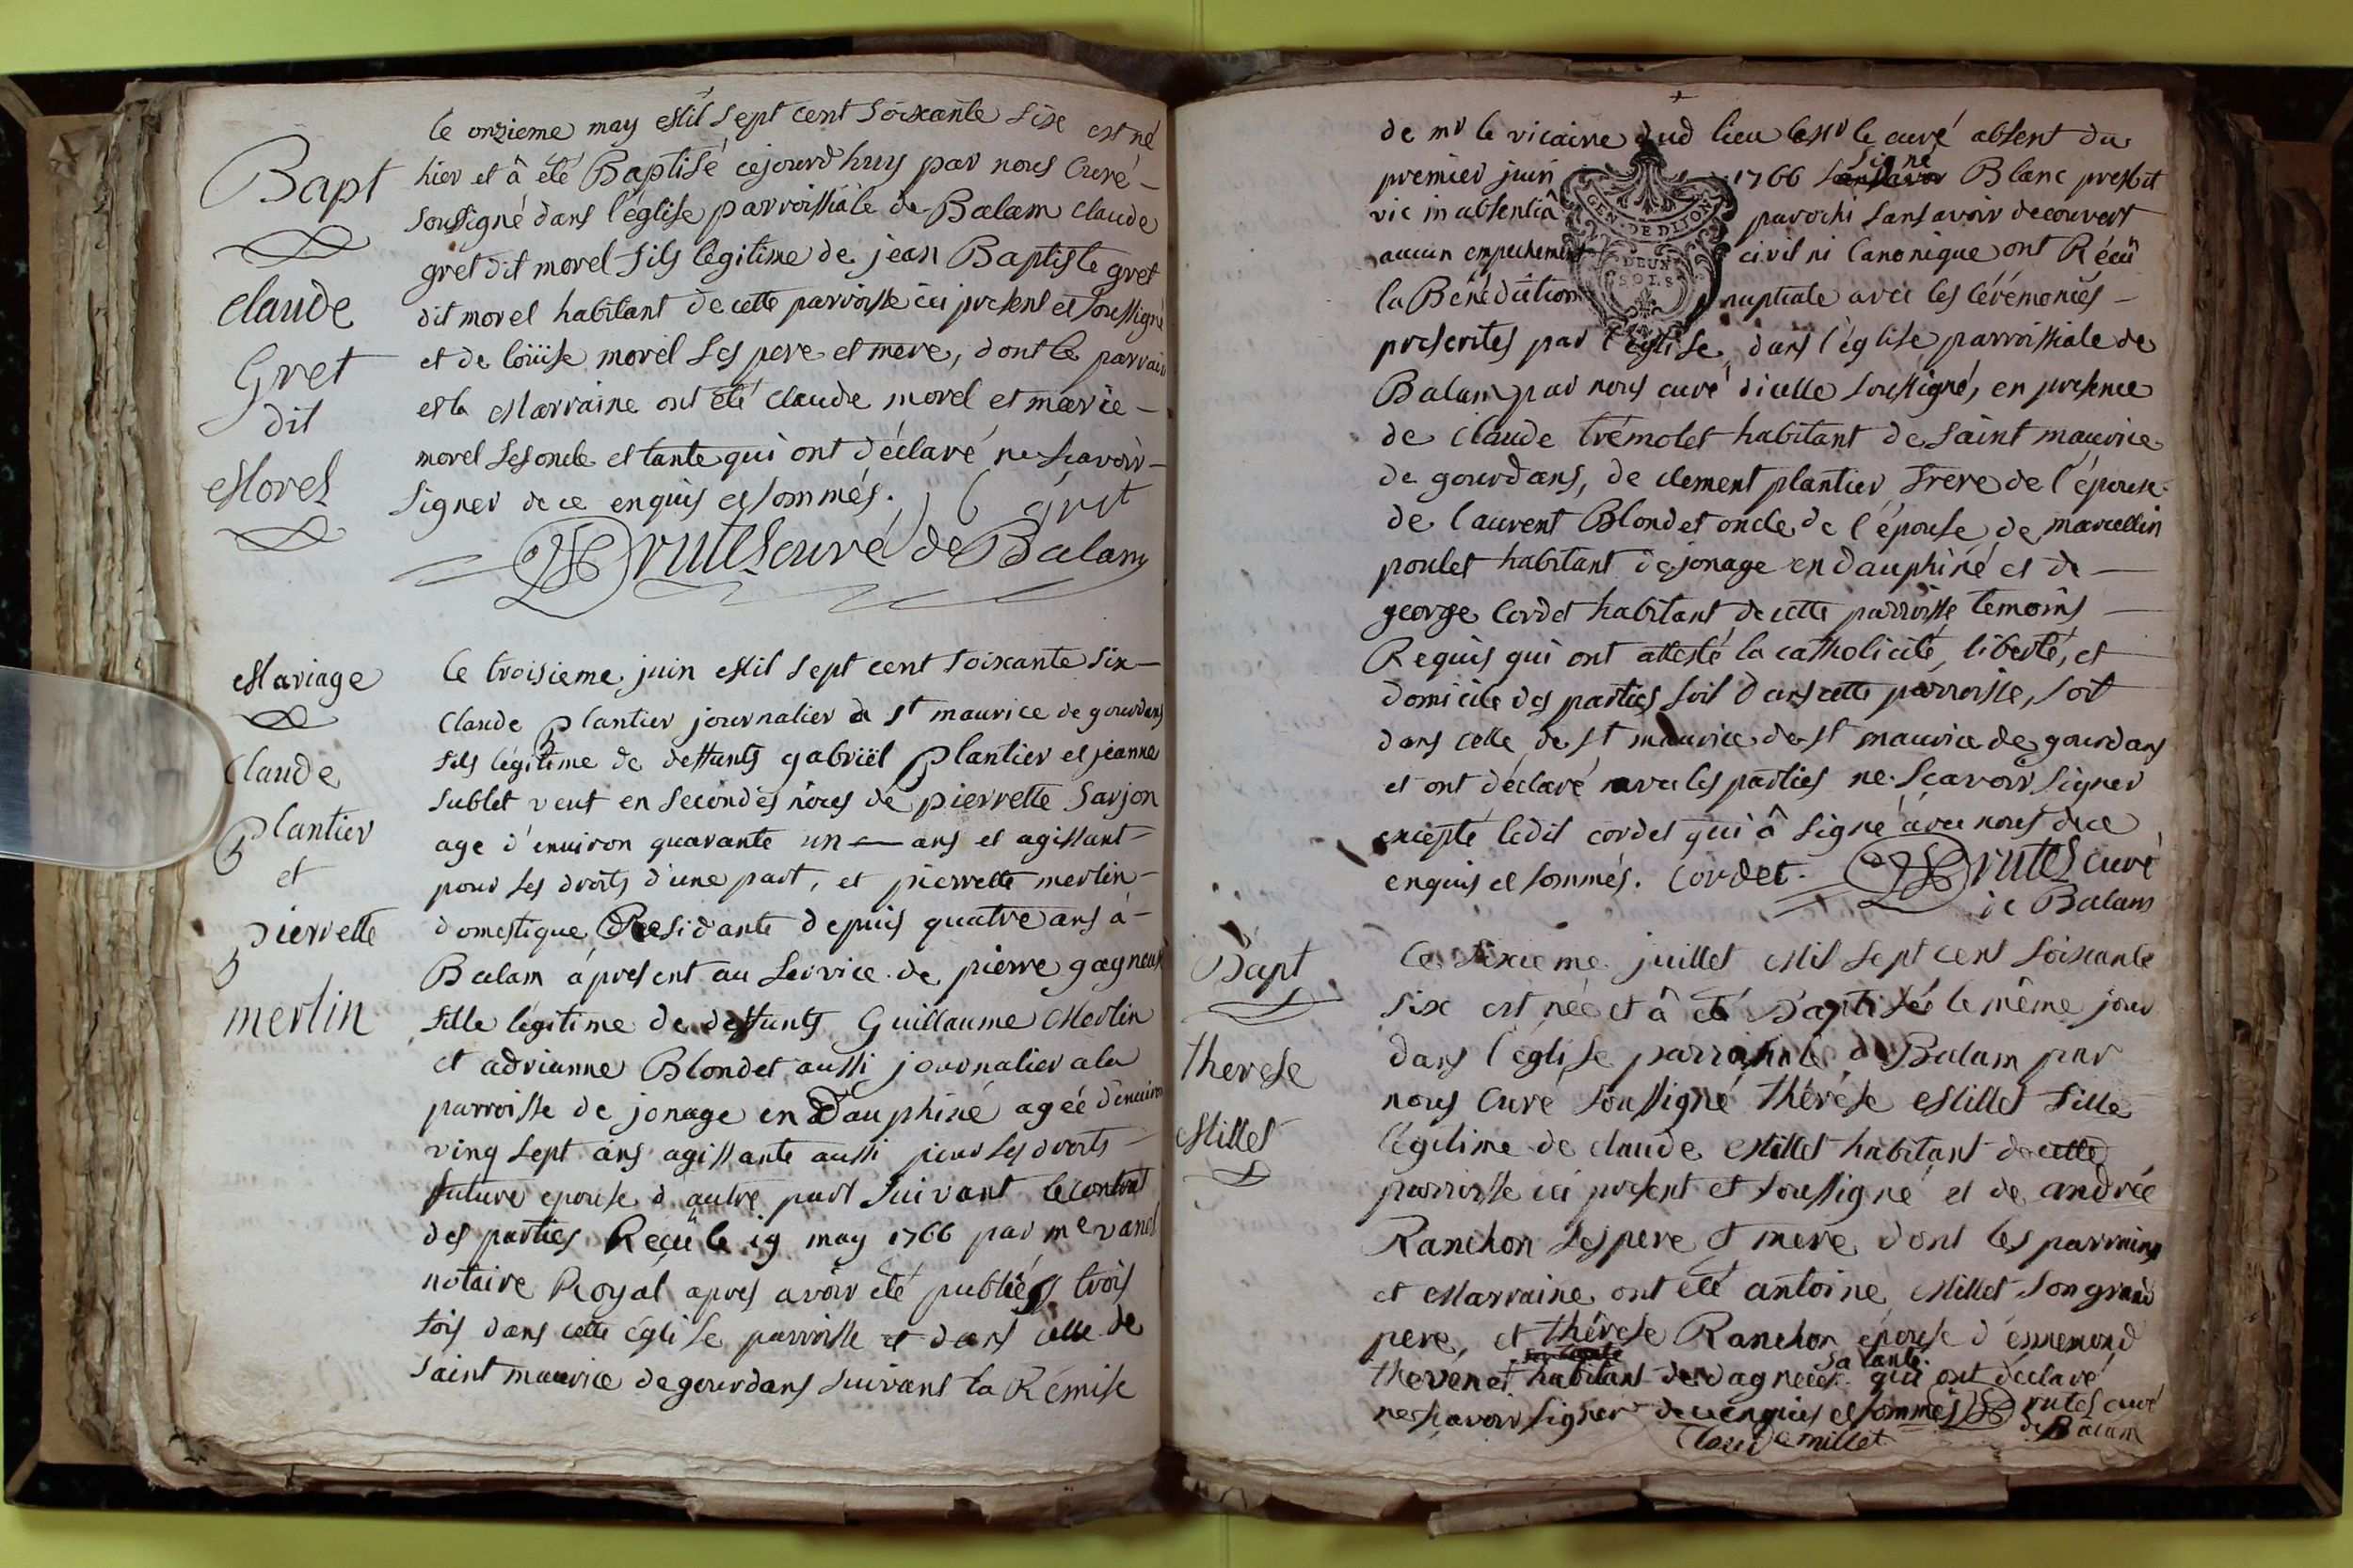 le onzieme may Mil sept cent soixante six est né
Bapt
hier et â été Baptisé cejourd huy par nous Curé –
soussigné dans l'église parroissiale de Balam claude
claude
gret dit morel fils légitime de jean Baptiste gret
dit morel habitant de cette parroisse ici present et soussigné
Gret
et de loüise morel ses pere et mere, dont le parrain
dit
et la Marraine ont été claude morel et marie –
morel ses oncle et tante qui ont déclaré ne scavoir –
Morel
signer de ce enquis et sommés. j b gret
Brutel curé de Balam
Mariage
le troisieme juin Mil sept cent soixante six –
claude plantier journalier de st maurice de gourdans
claude
fils légitime de deffunts gabriël plantier et jeanne
sublet veuf en secondes nôces de pierrette sarjon
plantier
age d'environ quarante un — ans et agissant –
et
pour ses droits d'une part, et pierrette merlin –
pierrette
domestique Residante depuis quatre ans à –
Balam à present au service de pierre gagneux
merlin
fille légitime de deffunts Guillaume Merlin
et adrianne Blondet aussi journalier a la
parroisse de jonage en Dauphiné agée d'environ
ving sept ans agissante aussi pour ses droits –
future epouse d'autre part suivant le contrat
des parties Reçu le 19 may 1766 par me vanel
notaire Royal apres avoir été publiés trois
fois dans cette église parroisse et dans celle de
saint maurice de gourdans suivant la Rémise
de mr le vicaire dud lieu le sr le curé absent du
signé
premier juin 1766 sans avoir Blanc presbit
vic in absentiâ parochi sans avoir decouvert
aucun empechement civil ni Canonique ont Réçû
la Bénédiction nuptiale avec les cérémonies –
GEN DE DIJON
DEUX
SOLS
prescrites par l'église, dans l'église parroissiale de
Balam par nous curé d'icelle soussigné, en presence
de claude trémolet habitant de saint maurice
de gourdans, de clement plantier frere de l'épouse
de laurent Blondet oncle de l'épouse de marcellin
poulet habitant de jonage en dauphiné et de —
george Cordet habitant de cette parroisse temoins —
Requis qui ont attesté la catholicité, liberté, et
domicile des parties soit dans cette parroisse, soit
dans celle de st maurice de st maurice de gourdans
et ont déclaré avec les parties ne scavoir signer
excepté ledit cordet qui â signé avec nous de ce
enquis et sommés. Cordet. Brutel curé
de Balam
Bapt
le sixieme juillet Mil sept cent soixante
six est née et â été Baptisée le même jour
therese
dans l'église parroissiale de Balam par
nous Curé soussigné thérèse Millet fille
Millet
légitime de claude Millet habitant de cette
parroisse ici present et soussigné et de andrée
Ranchon ses pere et mere dont les parrains
et Marraine ont été antoine Millet son grand
pere, et thérèse Ranchon épouse d'ennemond
sa tante
thevenet habitant de dagneux qui ont déclaré
ne scavoir signer de ce enquis et sommés Brutel curé
de Balam
Claude millet